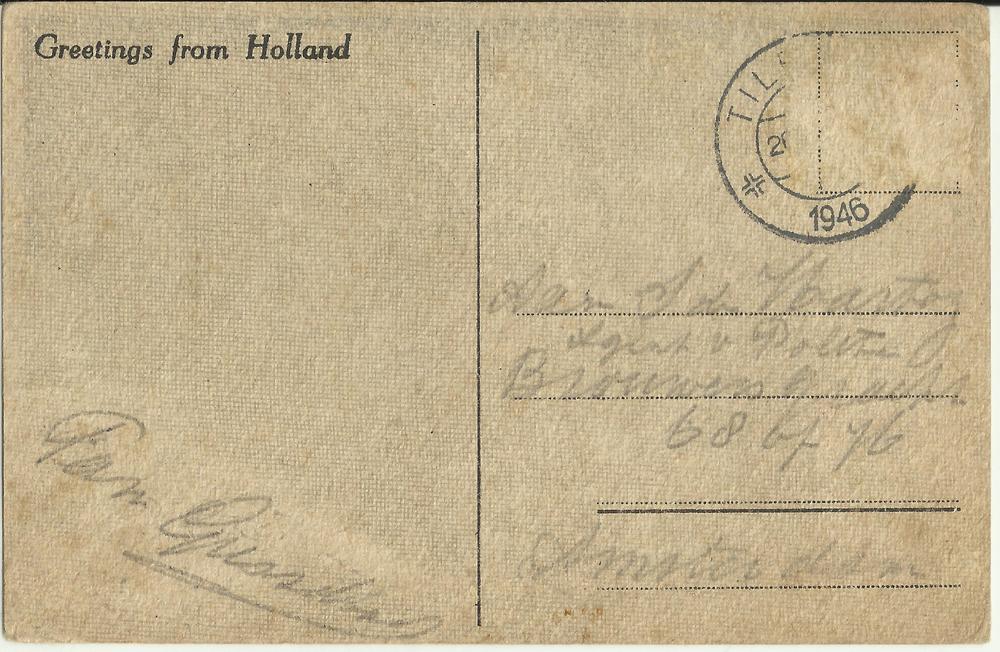 Greetings from Holland
TIL
20
1946
Aan S de
Agent v Politie
Brouwersgracht
68 of 76
Amsterdam
Fam